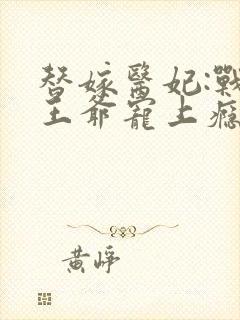 替嫁醫妃:戰
王爺寵上癮
黃崢